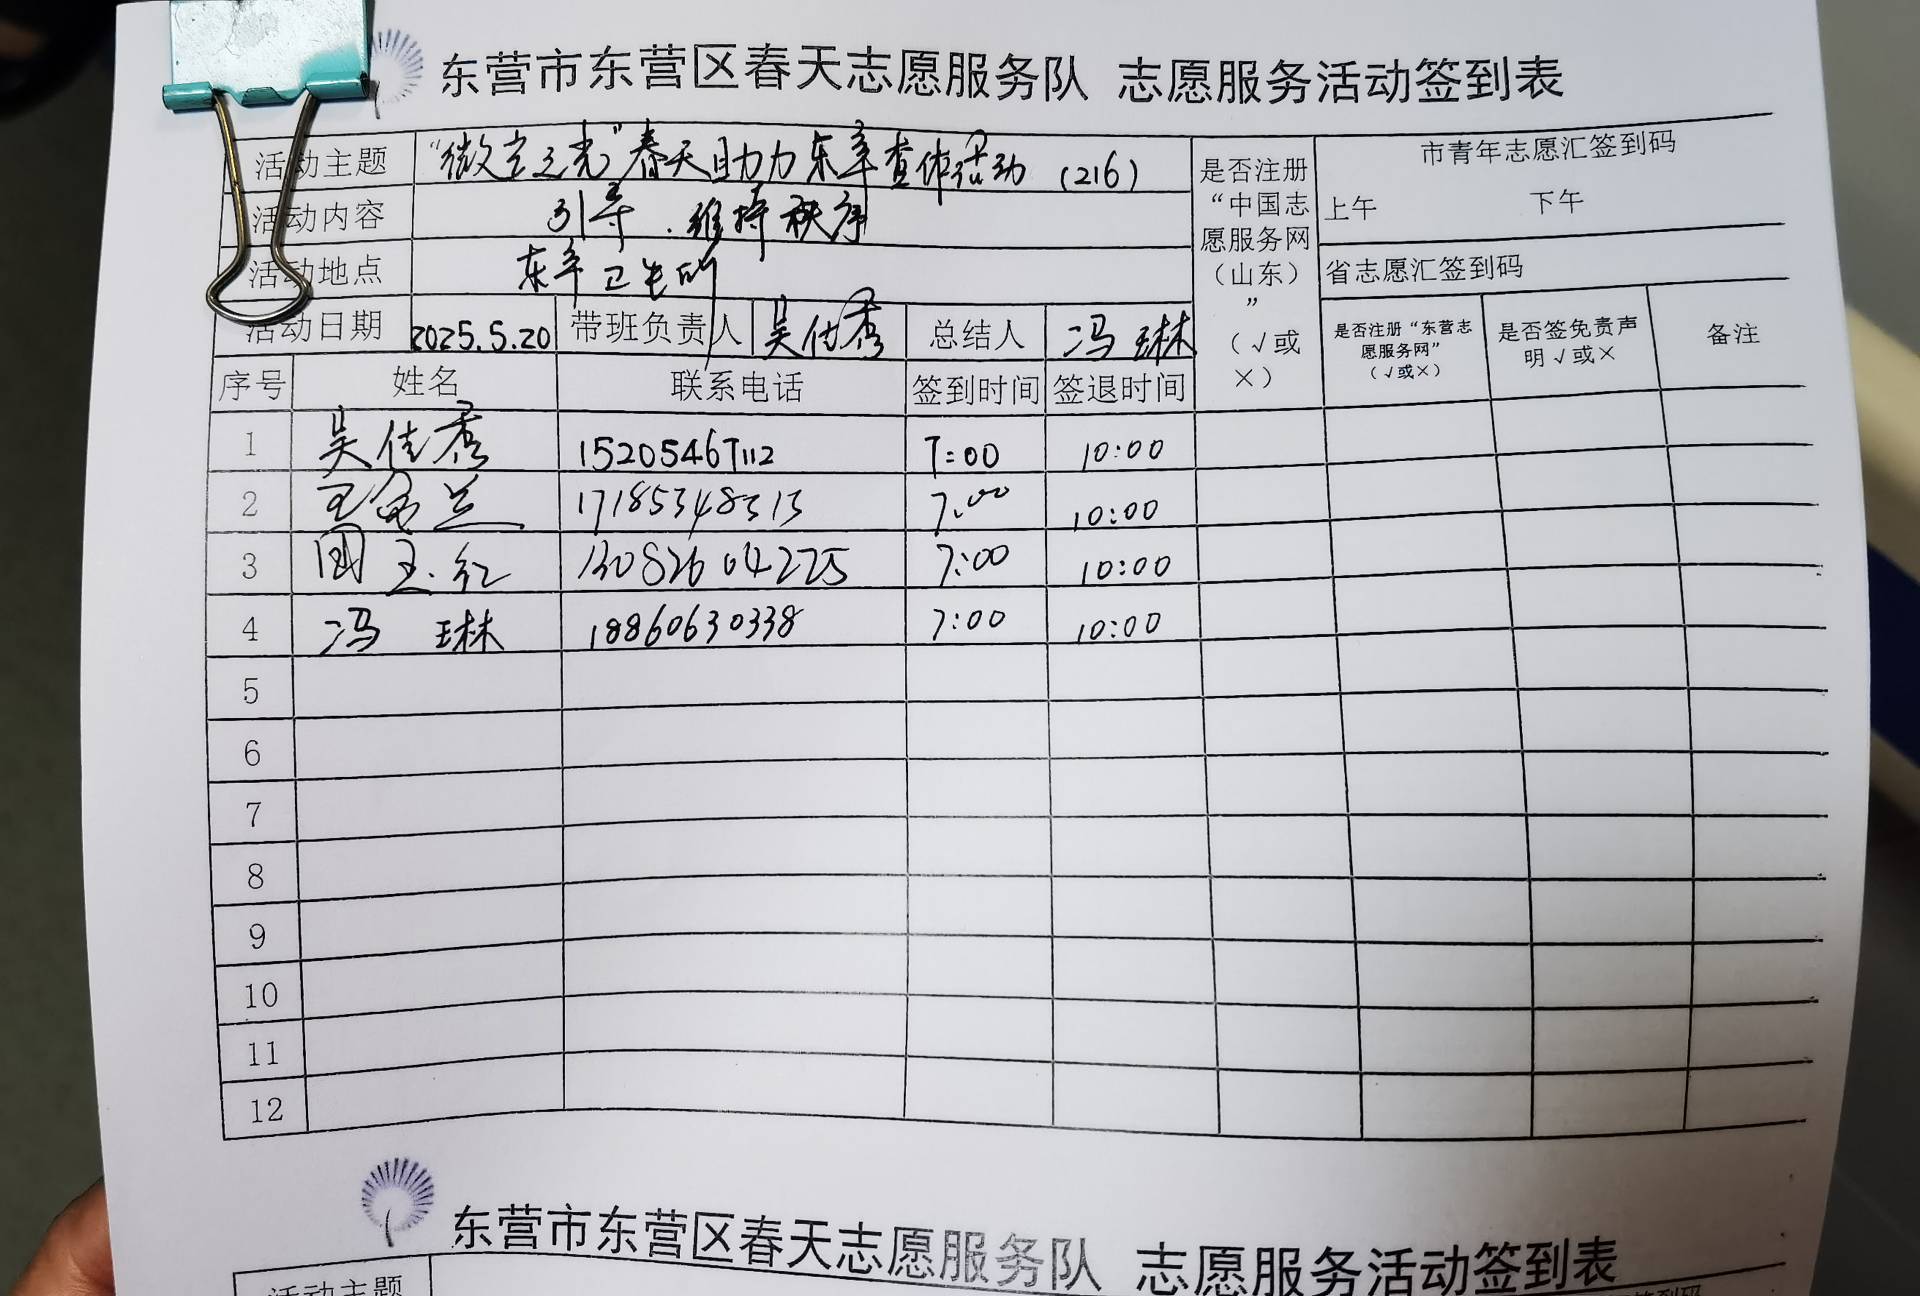 东营市东营区春天志愿服务队 志愿服务活动签到表
活动主题 “微尘之光”春天助力东辛查体活动 (216)
活动内容 引导.维持秩序
活动地点 东辛卫生所
活动日期 2025.5.20 带班负责人 吴佳秀 总结人 冯琳
是否注册“中国志愿服务网（山东）”（√或×）
市青年志愿汇签到码
上午 下午
省志愿汇签到码
是否注册“东营志愿服务网”（√或×） 是否签免责声明√或× 备注
序号 姓名 联系电话 签到时间 签退时间
1 吴佳秀 15205467112 7:00 10:00
2 王兰 17185348313 7:00 10:00
3 国玉红 13082604275 7:00 10:00
4 冯琳 18860630338 7:00 10:00
5
6
7
8
9
10
11
12
东营市东营区春天志愿服务队 志愿服务活动签到表
活动主题